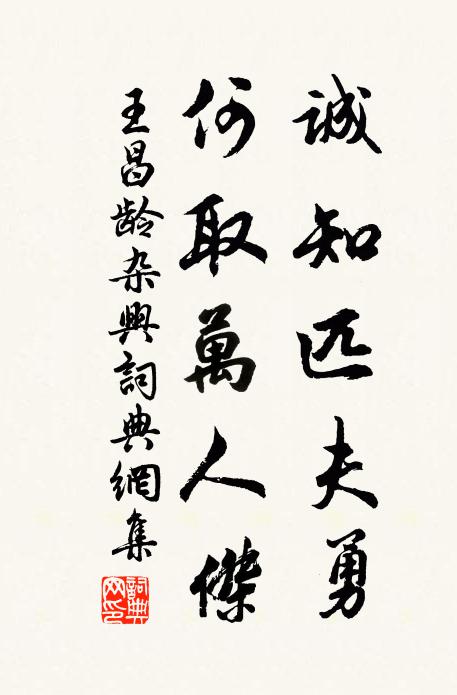 誠知匹夫勇
何取萬人傑
王昌龄杂興詞典網集
詞典網印